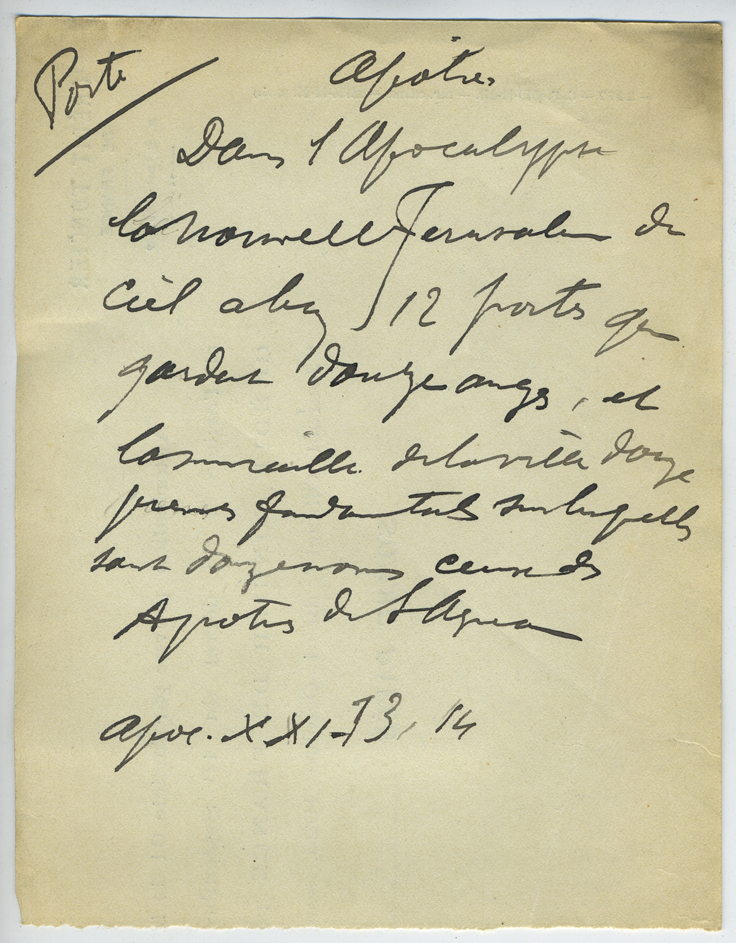 Porte
Apotres
Dans l Apocalypse
la nouvelle Jerusalem du
Ciel a 12 portes que
gardent douze anges, et
la muraille de la ville douze
pierres fondamentales sur lesquelles
sont douze noms ceux des
Apotres de l Agneau
Apoc. XXI-13, 14